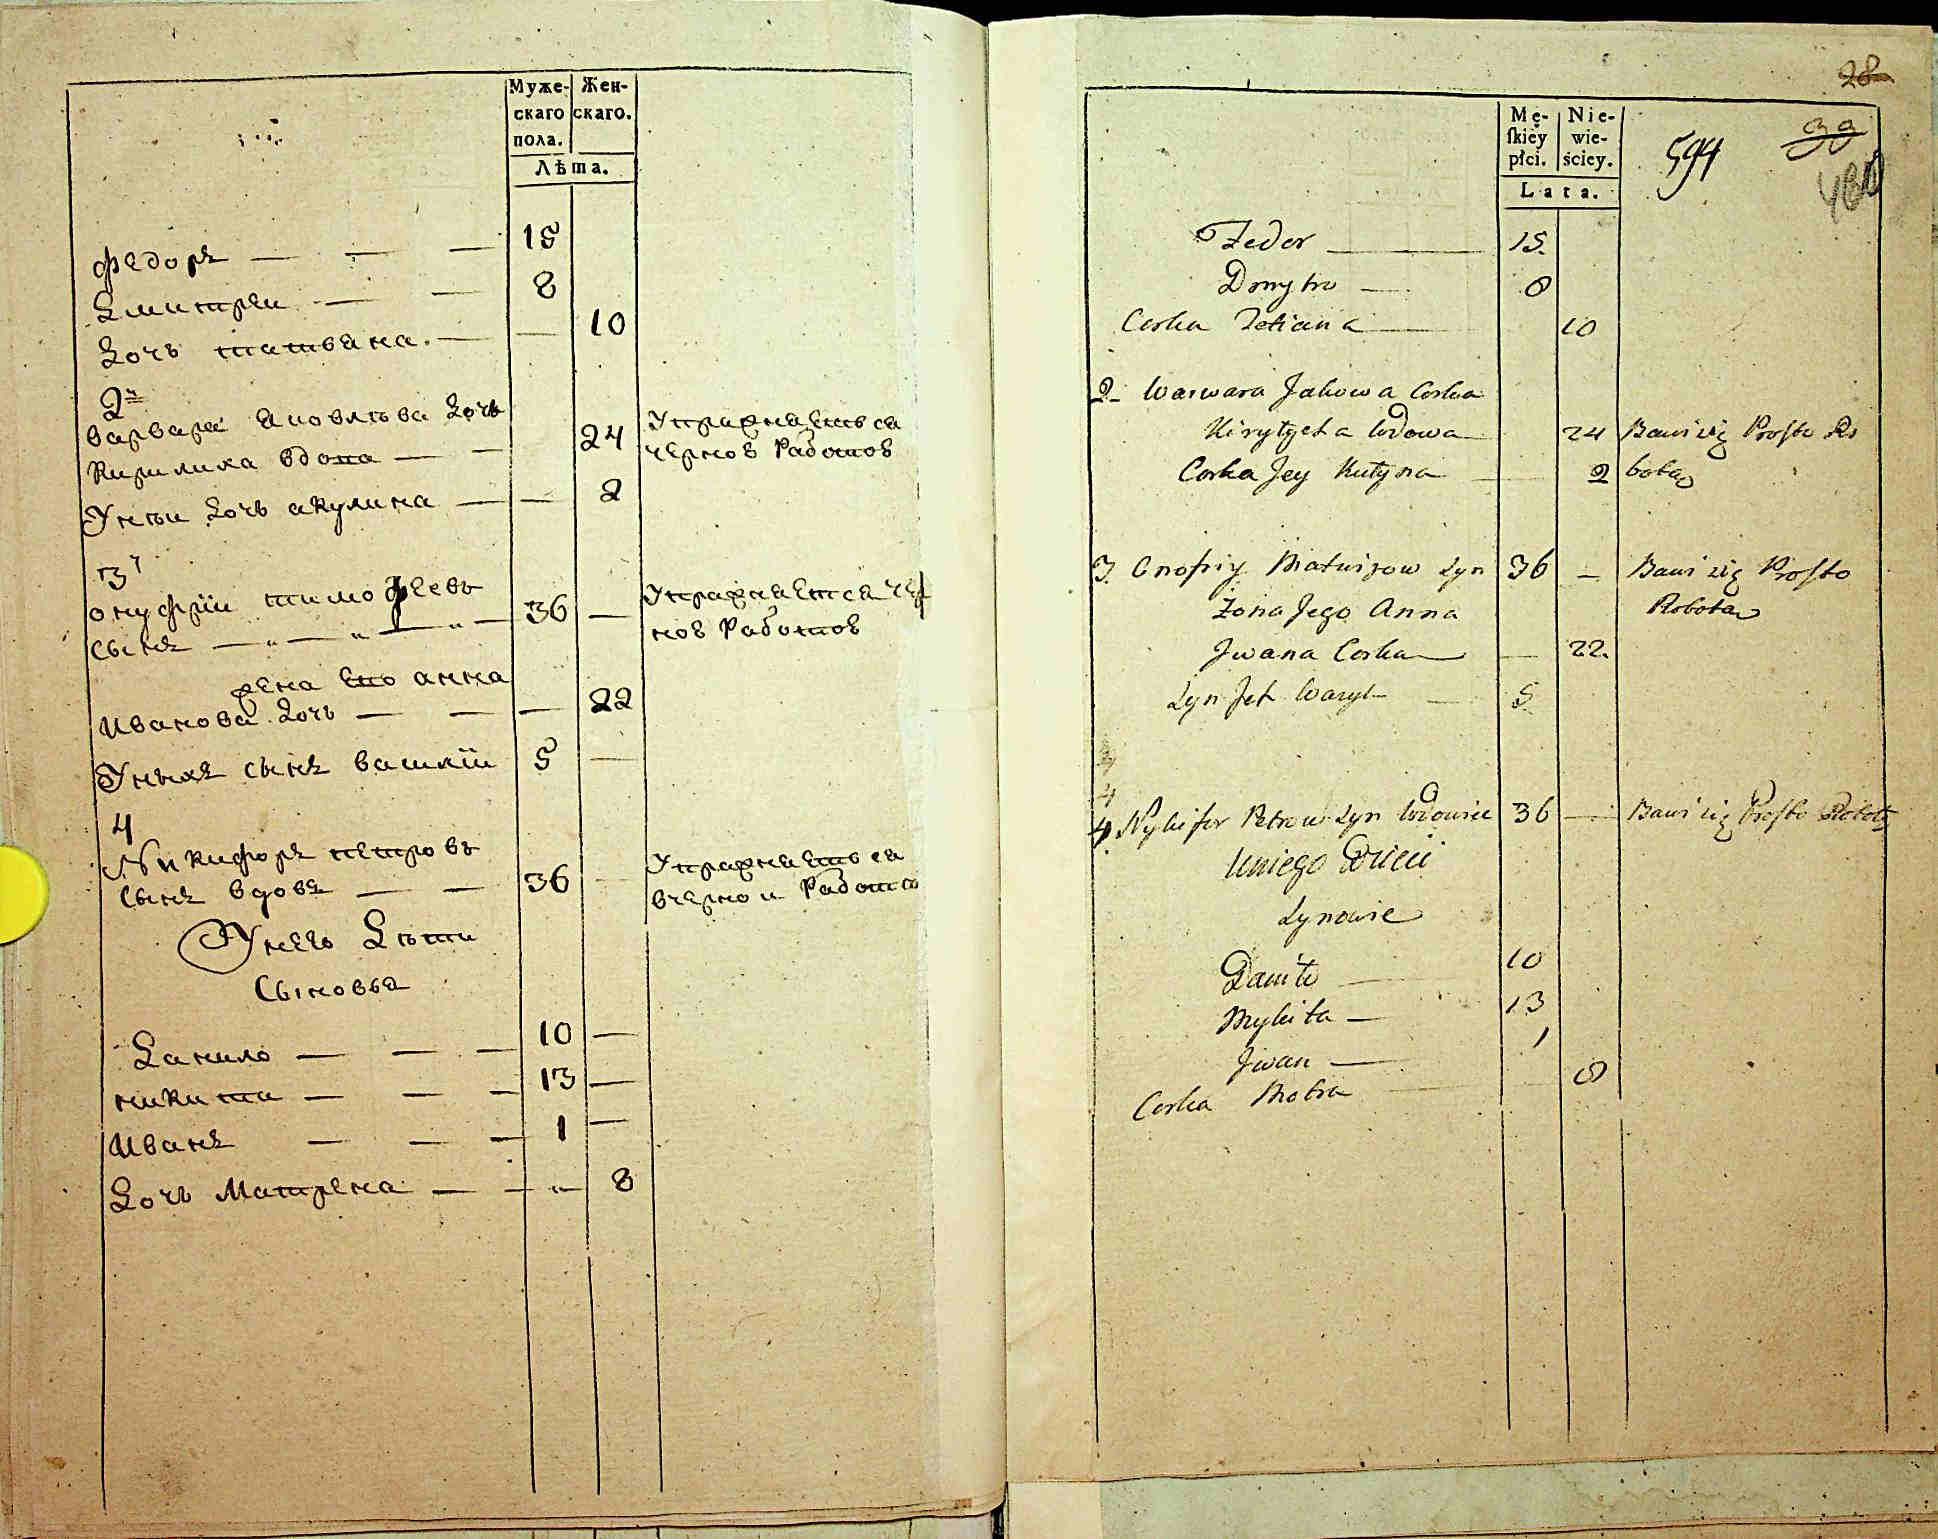 Муже-
скаго
пола.
Жен-
скаго.
Лѣта.
Федоръ — — — 15
Дмитреи — — 8
Дочь татьяна. — — 10
2я
варвара яковлева дочь
кирилиха вдова — — 24
Упражняеться
черной Работой
Унеи дочь акулина — — 2
3й
онуфрiи тимофеевъ
сынъ — „ — „ — „ — 36 —
Упражняетсячер
ной Работой
жена его анна
иванова дочь — — — 22
Унихъ сынъ василiи 5 —
4
Никифоръ петровъ
сынъ вдовъ — — 36 —
Упражняеться
вчернои Работо
Унего Дѣти
Сыновья
Данило — — — 10 —
никита — — — 13 —
Иванъ — — — 1 —
Дочь Матрена — — „ — 8
28
39
Mę-
ſkiéy
płci.
Nie-
wie-
ściey.
594
480
Lata.
Fedor — 15.
Dmytro — 8
Corka Tetiana — 10
2 Warwara Jakowa Corka
Kirylycha Wdowa — 24 Bawi się Prosto Ro
Corka Jey Kulyna — 2 botą
3. Onofriy Matwijow Syn 36 — Bawi się Prosto
Żona Jego Anna Robotą
Jwana Corka — — 22.
Syn Jch Wasyl — 5
4
4
4 Nykifor Petrow Syn Wdowiec 36 — Bawi się Prosto Robotą
Uniego Dzieci
Synowie
Daniło — 10
Mykita — 13
Jwan — 1
Corka Motra — 8